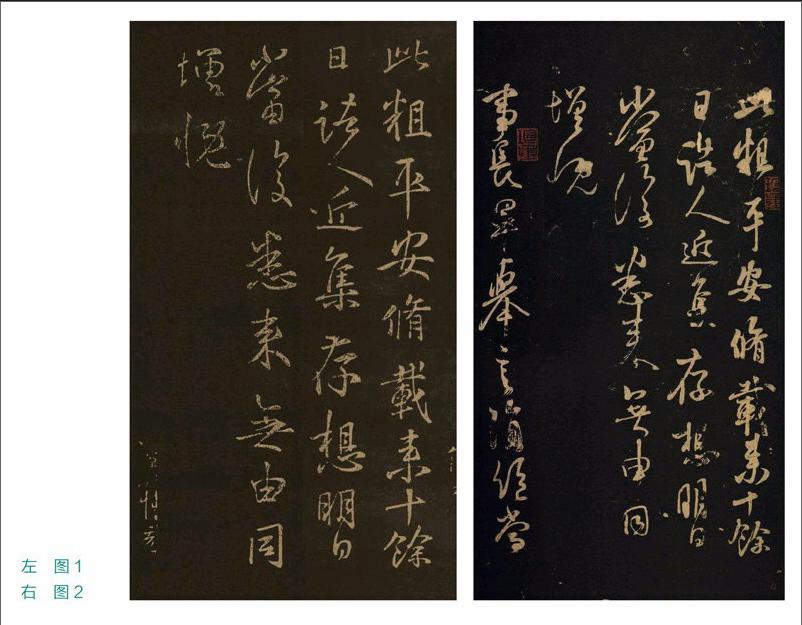 此粗平安脩載来十餘
日諸人近集存想明日
當復悉来無由同
增慨
此粗平安脩載来十餘
日諸人近集存想明日
當復悉来無由同
增慨
左 图1
右 图2